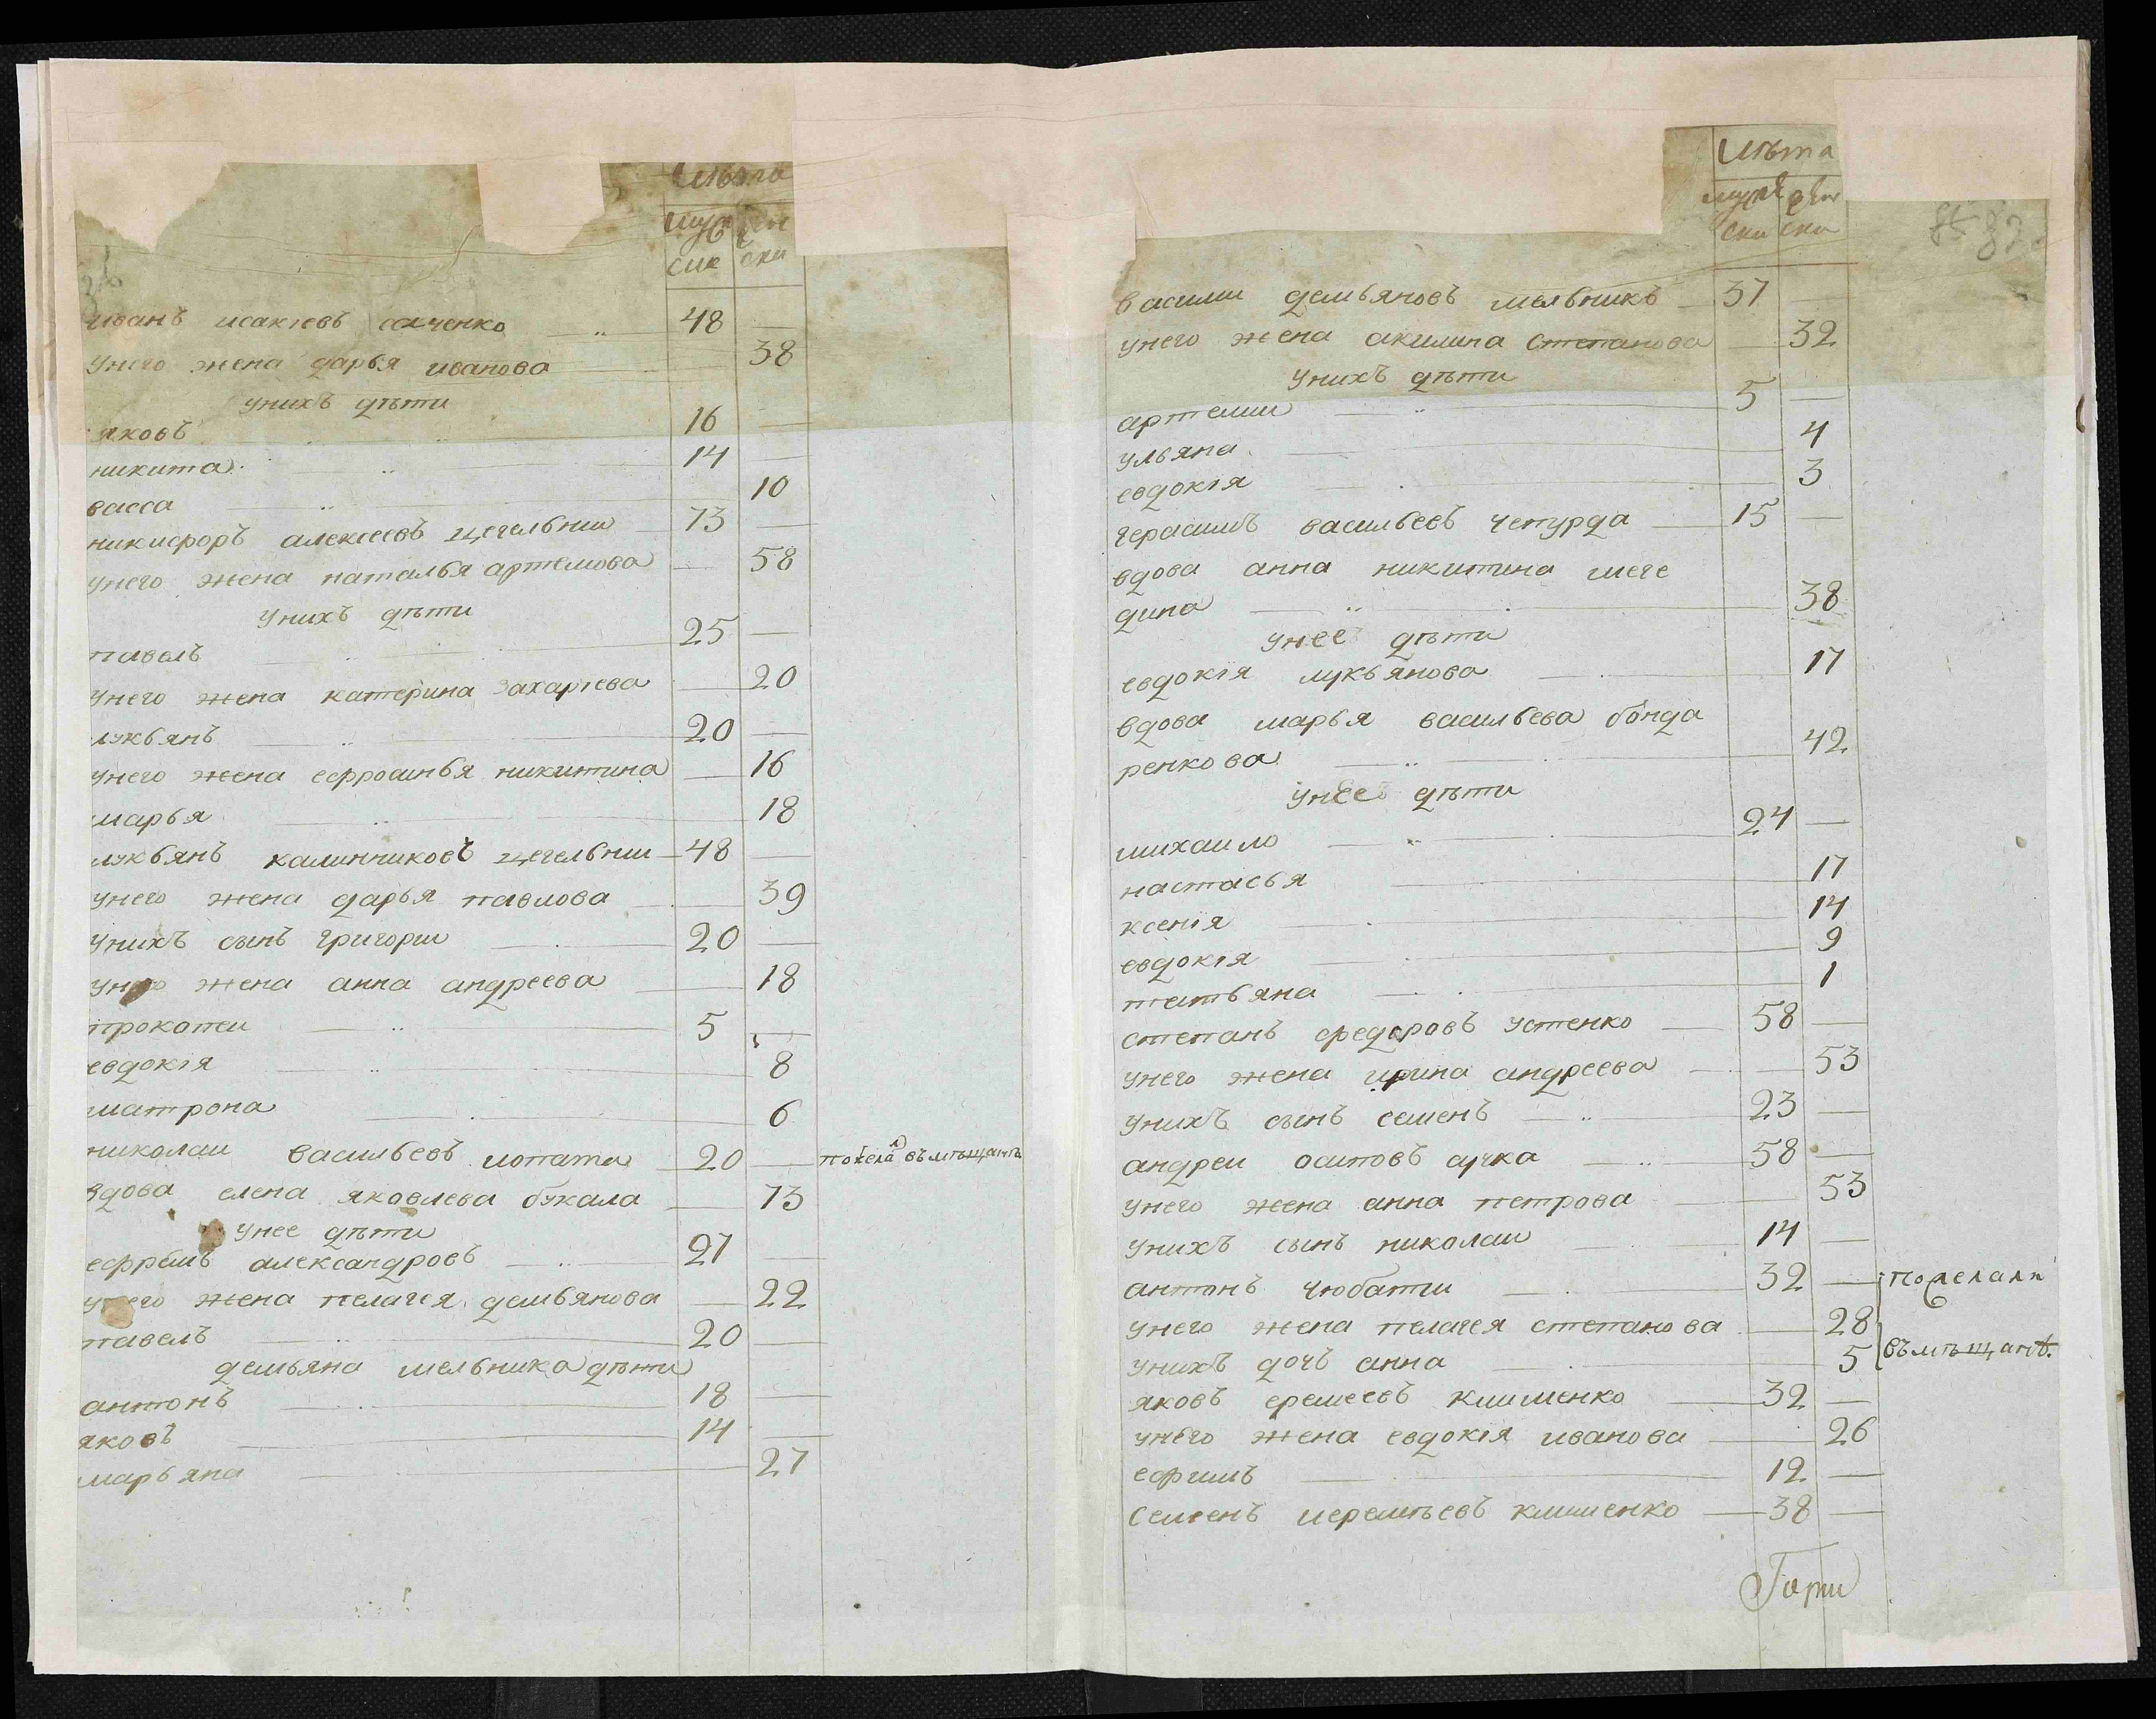 Лѣта
муж жен
ски ски
иванъ исакіевъ саченко 48 —
унего жена дарья иванова — 38
унихъ дѣти
яковъ 16 —
никита 14 —
васса 10
никифоръ алексеевъ цегельни 73 —
унего жена наталья артемова — 58
унихъ дѣти
павелъ 25 —
унего жена катерина захаріева — 20
лукьянъ 20 —
унего жена ефросинья никитина — 16
марья 18
лукьянъ калинниковъ цегельни 48 —
унего жена дарья павлова — 39
унихъ сынъ григории 20 —
унего жена анна андреева — 18
прокопеи 5 —
евдокія 8
матрона 6
николаи васильевъ лопата 20 — пожелалъ въ мѣщанѣ
вдова елена яковлева букала — 73
унее дѣти
ефремъ александровъ 27 —
унего жена пелагея демьянова — 22
павелъ 20 —
демьяна мельника дѣти
антонъ 18 —
яковъ 14 —
марьяна 27
Лѣта
муже жен
ски ски
васили демьяновъ мельникъ 37 —
унего жена акилина степанова — 32
унихъ дѣти
артеми 5 —
ульяна 4
евдокія 3
герасимъ васильевъ чепурда 15 —
вдова анна никитина шеге
дина 38
унее дѣти
евдокія лукьянова 17
вдова марья васильева бонда
ренкова 42
унее дѣти
михаило 24 —
настасья 17
ксенія 14
евдокія 9
татьяна 1
степанъ федоровъ устенко 58 —
унего жена ирина андреева — 53
унихъ сынъ семенъ 23 —
андреи осиповъ сучка 58 —
унего жена анна петрова — 53
унихъ сынъ николаи 14 —
антонъ чюбати 32 — пожелали
унего жена пелагея степанова — 28
унихъ дочь анна 5 въ мѣщанѣ.
яковъ еремеевъ клименко 32 —
унего жена евдокія иванова 26
ефимъ 12 —
семенъ иеремѣевъ клименко 38 —